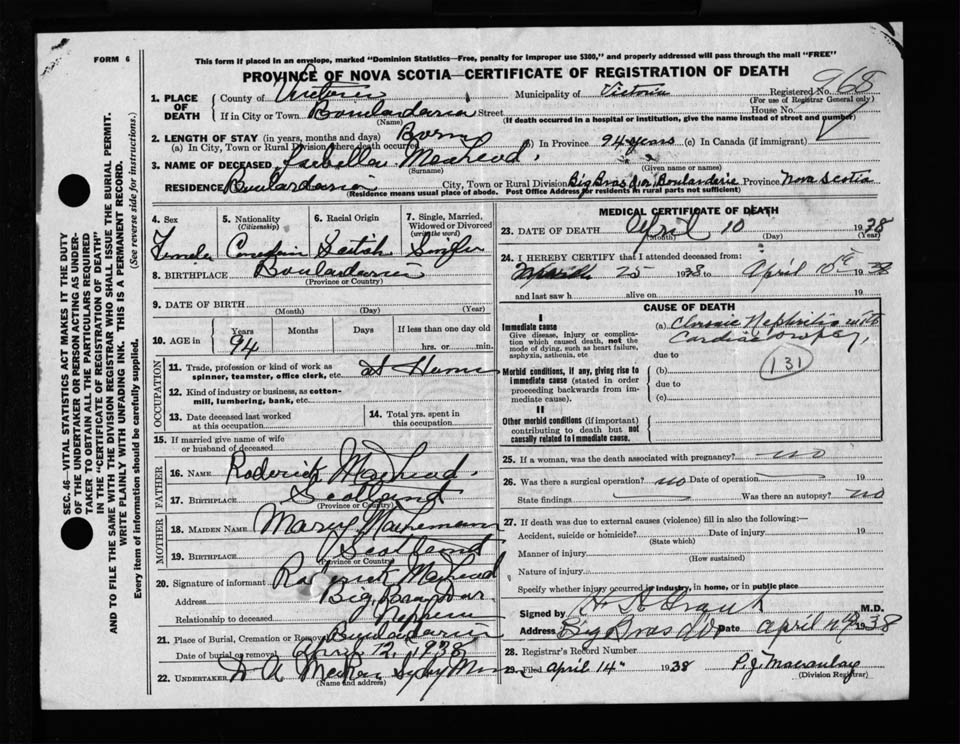 FORM 6
This form if placed in an envelope, marked "Dominion Statistics—Free, penalty for improper use $300," and properly addressed will pass through the mail "FREE"
PROVINCE OF NOVA SCOTIA—CERTIFICATE OF REGISTRATION OF DEATH
SEC. 46—VITAL STATISTICS ACT MAKES IT THE DUTY
OF THE UNDERTAKER OR PERSON ACTING AS UNDER-
TAKER TO OBTAIN ALL THE PARTICULARS REQUIRED
IN THE "CERTIFICATE OF REGISTRATION OF DEATH"
AND TO FILE THE SAME WITH THE DIVISION REGISTRAR WHO SHALL ISSUE THE BURIAL PERMIT.
WRITE PLAINLY WITH UNFADING INK. THIS IS A PERMANENT RECORD.
Every item of information should be carefully supplied. (See reverse side for instructions.)
1. PLACE OF DEATH
County of Victoria Municipality of Victoria Registered No. 968
(For use of Registrar General only)
If in City or Town Boulardarie Street House No.
(Name) (If death occurred in a hospital or institution, give the name instead of street and number)
2. LENGTH OF STAY (in years, months and days) Born
(a) In City, Town or Rural Division where death occurred (b) In Province 94 years (c) In Canada (if immigrant)
3. NAME OF DECEASED Isabella MacLeod.
(Surname) (Given name or names)
RESIDENCE Boulardarie City, Town or Rural Division Big Bras d'or, Boularderie Province Nova Scotia
(Residence means usual place of abode. Post Office Address for residents in rural parts not sufficient)
4. Sex 5. Nationality (Citizenship) 6. Racial Origin 7. Single, Married, Widowed or Divorced (write the word)
Female Canadian Scotish Single
8. BIRTHPLACE Boulardarie
(Province or Country)
9. DATE OF BIRTH
(Month) (Day) (Year)
10. AGE in Years Months Days If less than one day old
94 hrs. or min.
OCCUPATION
11. Trade, profession or kind of work as spinner, teamster, office clerk, etc. at Home
12. Kind of industry or business, as cotton-mill, lumbering, bank, etc.
13. Date deceased last worked at this occupation 14. Total yrs. spent in this occupation
15. If married give name of wife or husband of deceased
FATHER
16. NAME Roderick MacLeod.
17. BIRTHPLACE Scotland
(Province or Country)
MOTHER
18. MAIDEN NAME Mary
19. BIRTHPLACE Scotland
(Province or Country)
20. Signature of informant Roderick MacLeod
Address Big Bras d'or.
Relationship to deceased Nephew
21. Place of Burial, Cremation or Removal Boulardarie
Date of burial or removal April 12, 1938
22. UNDERTAKER Sydney Mines
(Name and address)
MEDICAL CERTIFICATE OF DEATH
23. DATE OF DEATH April 10 1938
(Month) (Day) (Year)
24. I HEREBY CERTIFY that I attended deceased from:
March 25 1938 to April 10th 1938
and last saw h alive on 19
CAUSE OF DEATH
I
Immediate cause
Give disease, injury or complication which caused death, not the mode of dying, such as heart failure, asphyxia, asthenia, etc
(a) Chronic Nephritis with
Cardiac Dropsy,
due to
131
Morbid conditions, if any, giving rise to immediate cause (stated in order proceeding backwards from immediate cause).
(b)
due to
(c)
II
Other morbid conditions (if important) contributing to death but not causally related to immediate cause.
25. If a woman, was the death associated with pregnancy? no
26. Was there a surgical operation? no Date of operation 19
State findings Was there an autopsy? no
27. If death was due to external causes (violence) fill in also the following:—
Accident, suicide or homicide? Date of injury 19
(State which)
Manner of injury
(How sustained)
Nature of injury
Specify whether injury occurred in industry, in home, or in public place
Signed by Grant M.D.
Address Big Bras d'Or Date April 1938
28. Registrar's Record Number
29. Filed April 14" 1938 P.J. Macaulay
(Division Registrar)